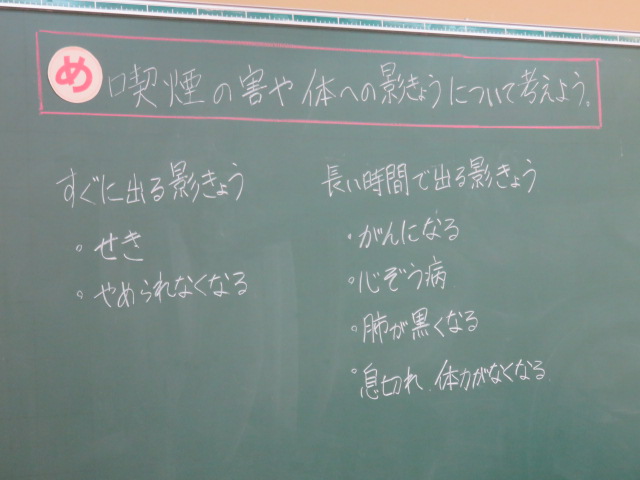 め 喫煙の害や体への影きょうについて考えよう。
すぐに出る影きょう
・せき
・やめられなくなる
長い時間で出る影きょう
・がんになる
・心ぞう病
・肺が黒くなる
・息切れ、体力がなくなる